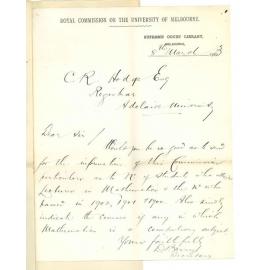 ROYAL COMMISSION ON THE UNIVERSITY OF MELBOURNE.
SUPREME COURT LIBRARY,
MELBOURNE,
8th March 1903
C. R. Hodge Esq
Registrar
Adelaide University
Dear Sir/
Would you be so good as to send
for the information of this Commission
particulars as to No of Students who
Lectures in Mathematics & the No who
passed in 1900, 1901 & 1902. Also kindly
indicate the courses if any in which
Mathematics is a compulsory subject
Yours faithfully
Secretary